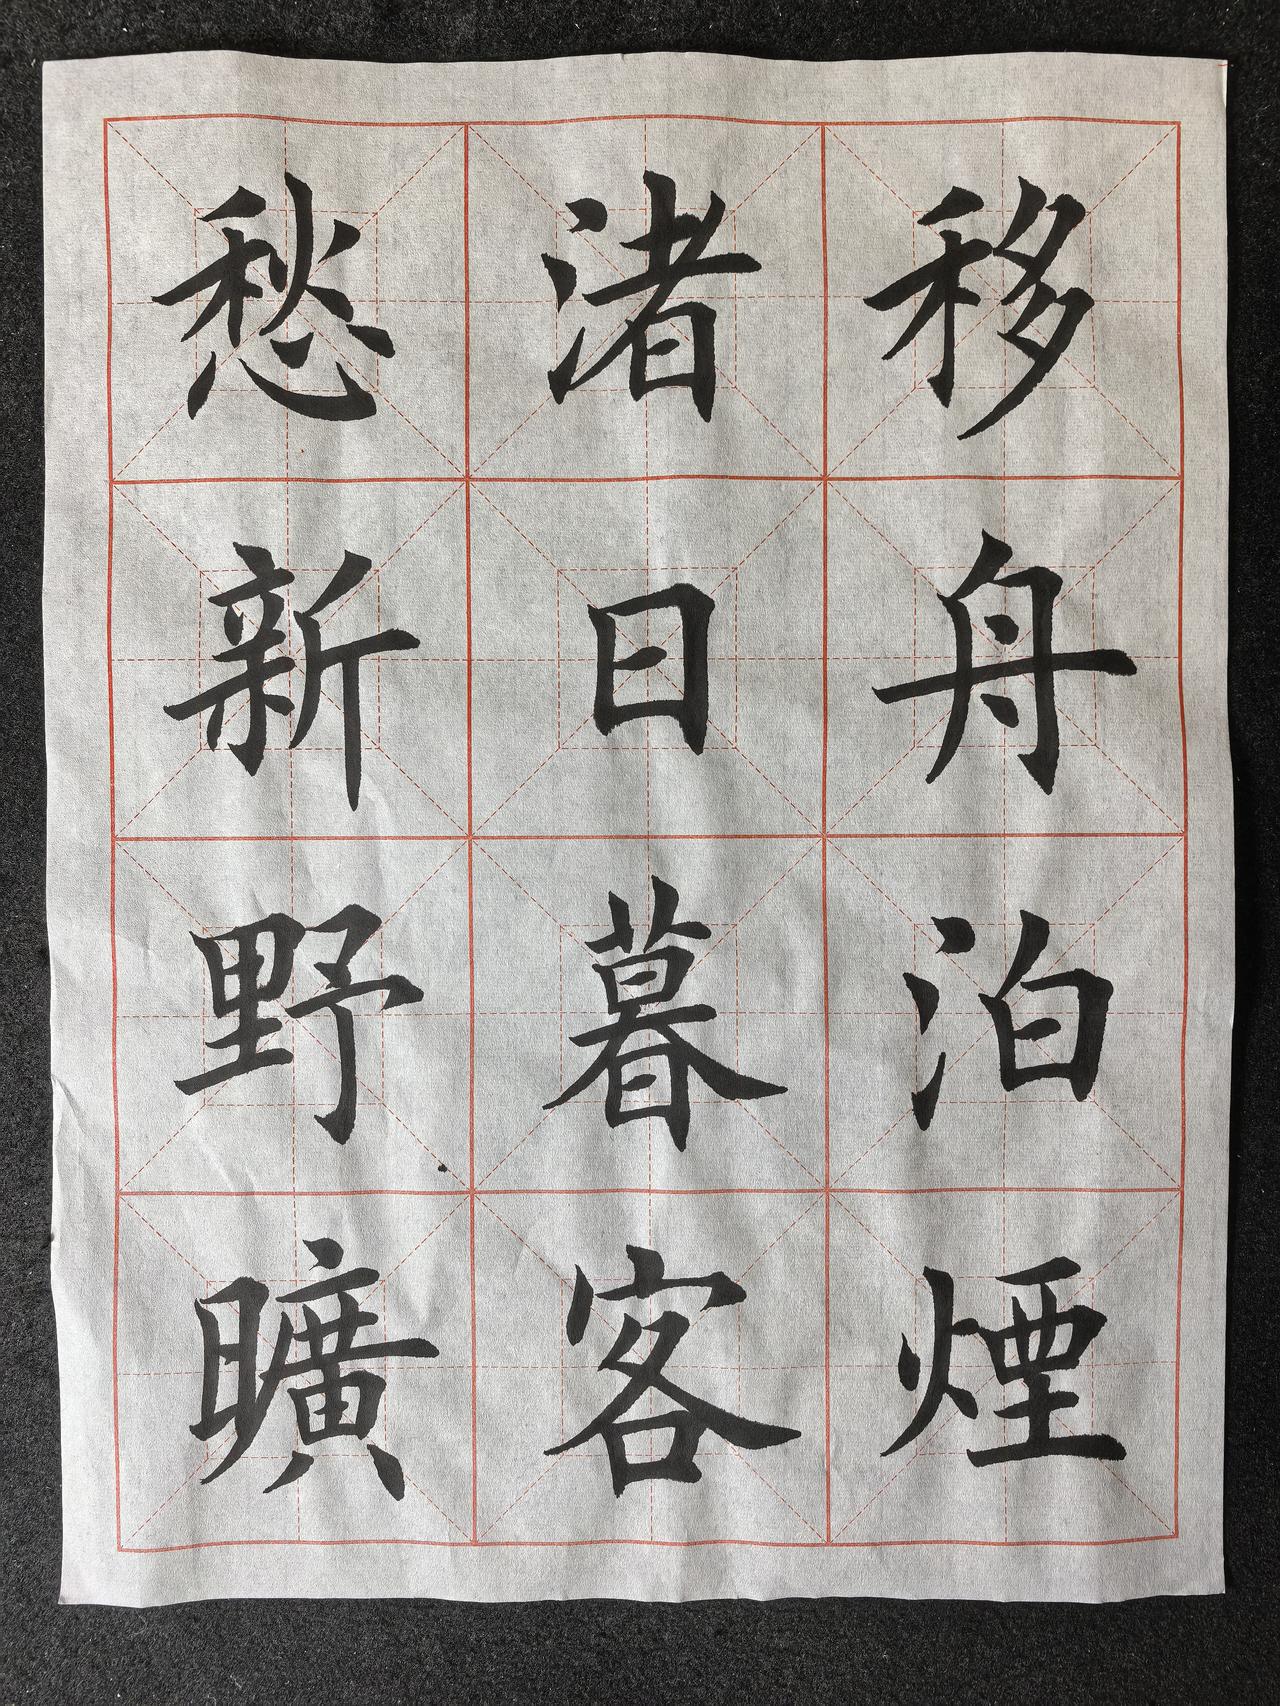 移舟泊煙
渚日暮客
愁新野曠